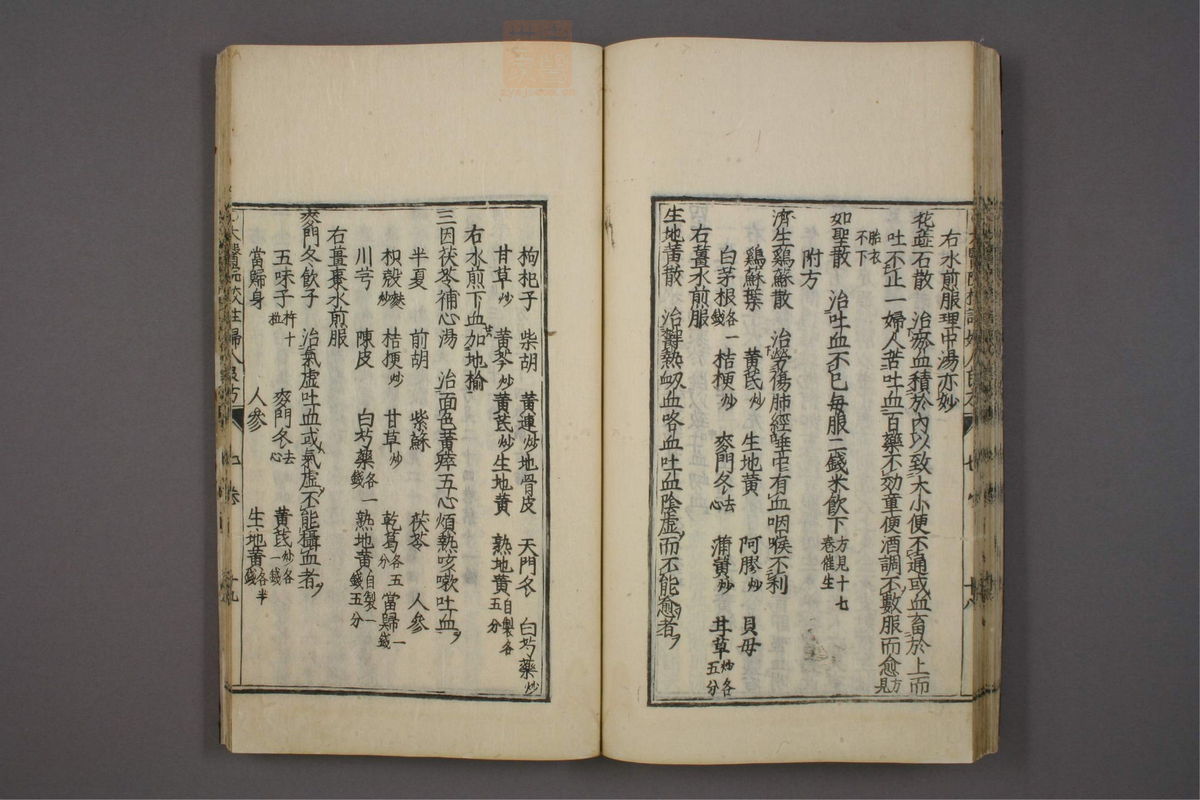 右水煎服理中湯亦妙
花蕋石散　治瘀血積於內以致大小便不通或血畜於上而
吐不止一婦人苦吐血百藥不効童便酒調不數服而愈方見
胎衣不下
如聖散　治吐血不已每服二錢米飲下方見十七卷催生
附方
濟生鷄蘇散　治勞傷肺經唾中有血咽喉不利
鷄蘇葉　黃芪炒　生地黃　阿膠炒　貝母
白茅根各一錢　桔梗炒　麥門冬去心　蒲黃炒　甘草炒各五分
右薑水煎服
生地黃散　治鬱熱衂血咯血吐血陰虛而不能愈者
枸杞子　柴胡　黃連炒　地骨皮　天門冬　白芍藥炒
甘草炒　黃芩炒　黃芪炒　生地黃　熟地黃自製各五分
右水煎下血加地榆
三因茯苓補心湯　治面色黃瘁五心煩熱咳嗽吐血
半夏　前胡　紫蘇　茯苓　人參
枳殼麩炒　桔梗炒　甘草炒　乾葛各五分　當歸一錢
川芎　陳皮　白芍藥各一錢　熟地黃自製一錢五分
右薑棗水煎服
麥門冬飲子　治氣虛吐血或氣虛不能攝血者
五味子杵十粒　麥門冬去心　黃芪炒各一錢
當歸身　人參　生地黃各半錢
太醫院校註婦人良方
七卷
十九
十八